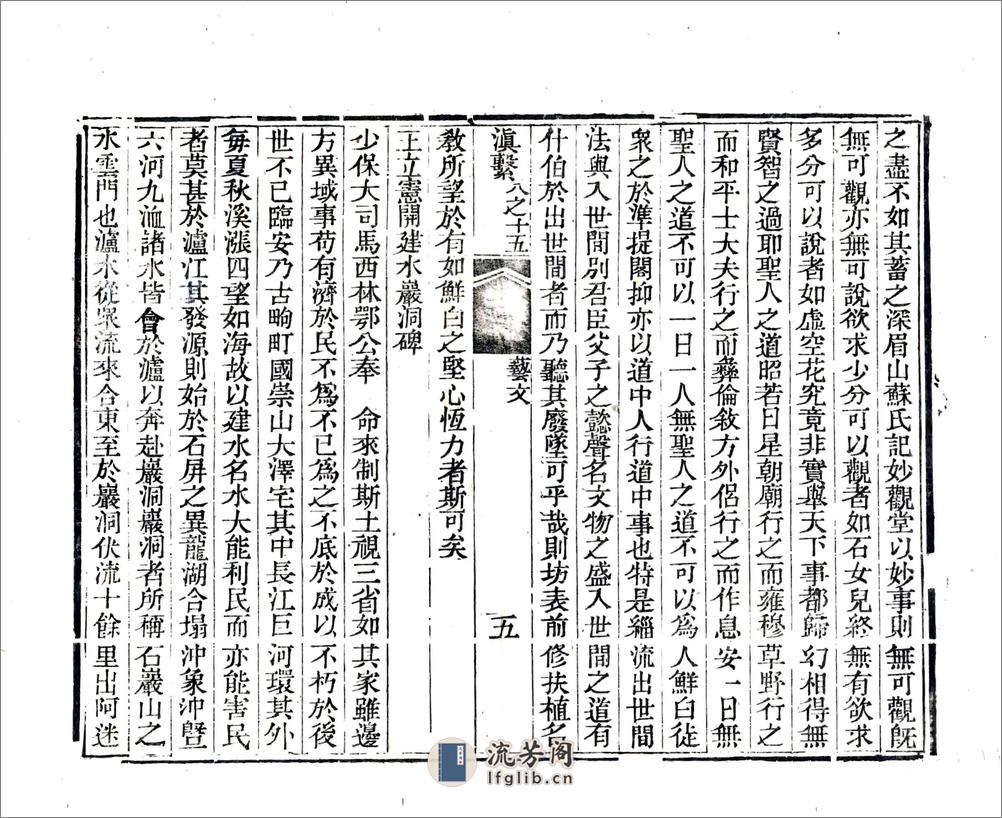 之盡不如其蓄之深眉山蘇氏記妙觀堂以妙事則無可觀旣
無可觀亦無可說欲求少分可以觀者如石女兒終無有欲求
多分可以說者如虛空花究竟非實舉天下事都歸幻相得無
賢智之過耶聖人之道昭若日星朝廟行之而雍穆草野行之
而和平士大夫行之而彝倫敘方外侶行之而作息安一日無
聖人之道不可以一日一人無聖人之道不可以為人鮮白徒
衆之於準提閣抑亦以道中人行道中事也特是緇流出世間
法與入世間別君臣父子之懿聲名文物之盛入世間之道有
什伯於出世間者而乃聽其廢墜可乎哉則坊表前修扶植名
滇繫 八之十五 藝文 五
敎所望於有如鮮白之堅心恆力者斯可矣
上立憲開建水巖洞碑
少保大司馬西林鄂公奉 命來制斯土視三省如其家雖邊
方異域事苟有濟於民不爲不已爲之不底於成以不朽於後
世不已臨安乃古畇町國崇山大澤宅其中長江巨河環其外
每夏秋溪漲四望如海故以建水名水大能利民而亦能害民
者莫甚於瀘江其發源則始於石屏之異龍湖合塌沖象沖曁
六河九洫諸水皆會於瀘以奔赴巖洞巖洞者所稱石巖山之
水雲門也瀘水從衆流來合東至於巖洞伏流十餘里出阿迷
流芳阁
lfglib.cn